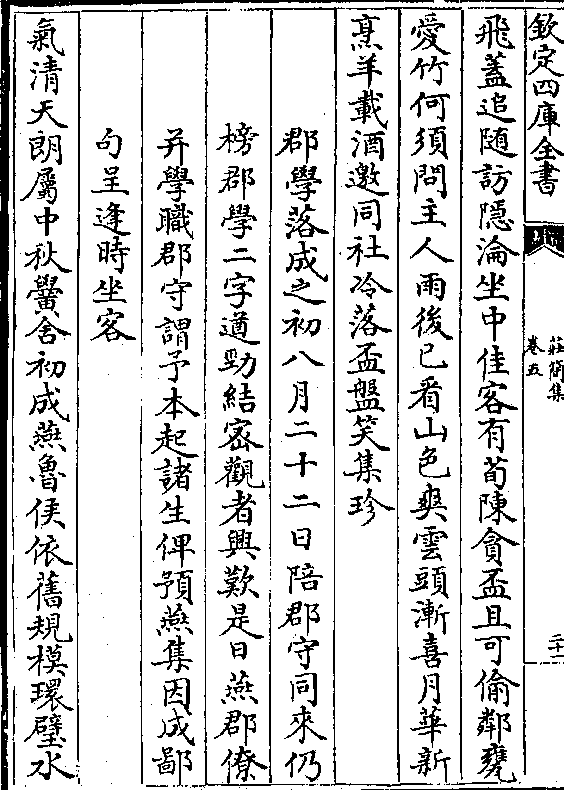 欽定四庫全書
莊簡集
卷五
二十一
飛蓋追随訪隠淪坐中佳客有荀陳貪盃且可偷鄰甕
愛竹何須問主人雨後已看山色爽雲頭漸喜月華新
烹羊載酒邀同社冷落盃盤笑集珍
郡學落成之初八月二十二日陪郡守同來仍
榜郡學二字遒勁結宻觀者興歎是日燕郡僚
并學職郡守謂予本起諸生俾預燕集因成鄙
句呈逢時坐客
氣清天朗屬中秋黌舍初成燕魯侯依舊規模環璧水